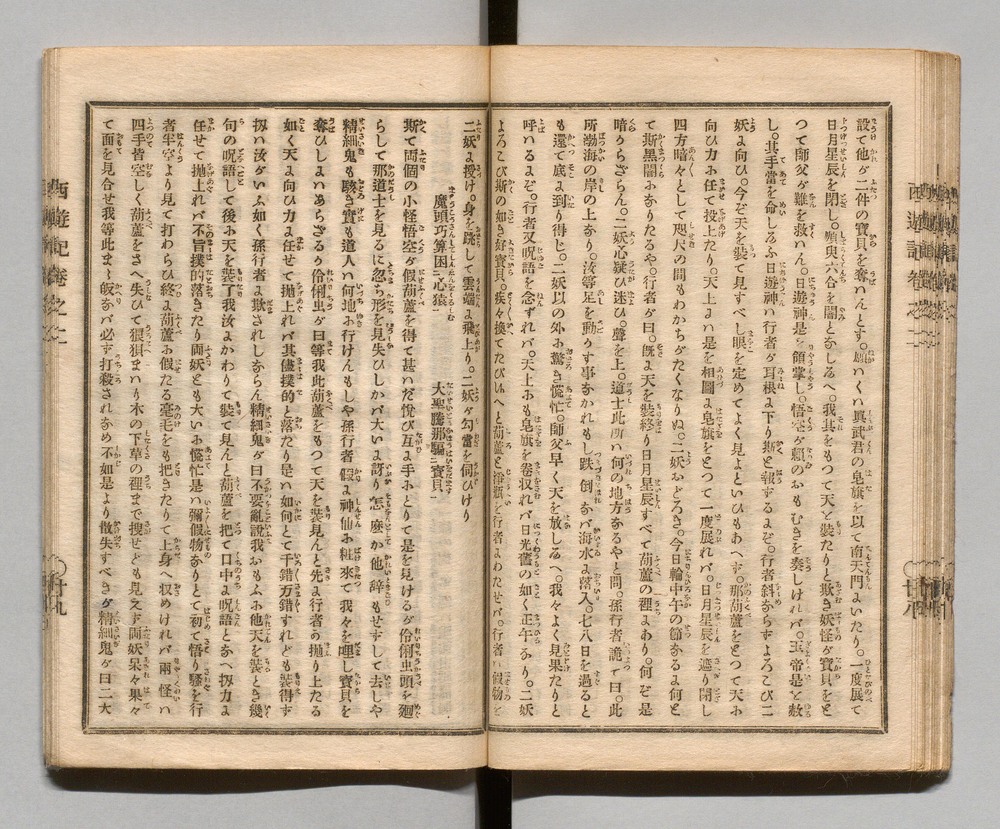 設て他が二件の寶貝を奪はんとす。願くは眞武君の皂旗を以て南天門よいたり。一度展て
日月星辰を閉し。頗與六合を闇となしるへ。我其をもつて天を裝たりと欺き妖怪が寶貝をと
つて師父が難を救はん。日遊神是を領掌し。悟空が願のおもむきを奏しければ。玉帝是を敕
し。其手當を命しるふ日遊神ハ行者が耳根よ下り斯と報するよぞ。行者斜ならすよろこび二
妖よ向ひ。今ぞ天を裝て見すべし眼を定めてよく見よといひもあへす。那葫蘆をとつて天よ
向ひ力よ任せて投上たり。天上よハ是を相圖よ皂旗をとつて一度展れバ。日月星辰を遮り閉し
四方暗々として咫尺の間もわかちがたくなりぬ。二妖おどろき。今日輪中午の節なるよ何と
て斯黑闇よなりたるや。行者が曰。旣よ天を裝終り日月星辰すべて葫蘆の裡よあり。何ぞ是
暗からざらん。二妖心疑ひ迷ひ。聲を上。道士此所ハ何の地方なるやと問。孫行者詭て曰。此
所渤海の岸の上なり。汝等足を動かす事なかれもし跌倒なバ海水よ落入。七八日を過ると
も還て底よ到り得じ。二妖以の外よ驚き慌忙。師父早く天を放しるへ。我々よく見果たりと
呼ハるよぞ。行者又呪語を念ずれバ。天上よも皂旗を卷收れバ日光舊の如く正午なり。二妖
よろこび斯の如き好寶貝。疾々換てたびるへと葫蘆と淨瓶を行者よわたせバ。行者ハ假物を
二妖よ授け。身を跳して雲端よ飛上り。二妖が勾當を伺ひけり
魔頭巧算困心猿　大聖騰那騙寶貝
斯て兩個の小怪悟空が假葫蘆を得て甚だ悅び互よ手よとりて是を見けるが伶俐虫頭を廻
らして那道士を見るに忽ち形を見失ひしかバ大いよ訝り怎麼か他辭もせずして去しや
精細鬼も駭き實も道人ハ何地よ行けんもしや孫行者假よ神仙よ粧來て我々を哩し寶貝を
奪ひしよハあらざるか伶俐虫が曰等我此葫蘆をもつて天を裝見んと先よ行者の拋り上たる
如く天よ向ひ力よ任せて拋上れバ其儘撲的と落たり是ハ如何とて千錯万錯すれども裝得す
扨ハ汝がいふ如く孫行者よ欺されしならん精細鬼が曰不要亂說我おもふよ他天を裝とき幾
句の呪語して後よ天を裝了我汝よかわりて裝て見んと葫蘆を把て口中よ呪語となへ扨力よ
任せて拋上れバ不旨撲的落きたり兩妖とも大いよ慌忙是ハ彌假物なりとて初て悟り騷を行
者半空より見て打わらひ終よ葫蘆よ假たる毫毛をも把きたりて上身へ收めければ兩怪ハ
四手皆空しく葫蘆をさへ失ひて狠狽まハり木の下草の裡まで搜せども見えず兩妖呆々果々
て面を見合せ我等此まま皈なバ必ず打殺されなめ不如是より散失すべきが精細鬼が曰二大
西遊記卷之二
西遊記卷之二
廿八
廿九